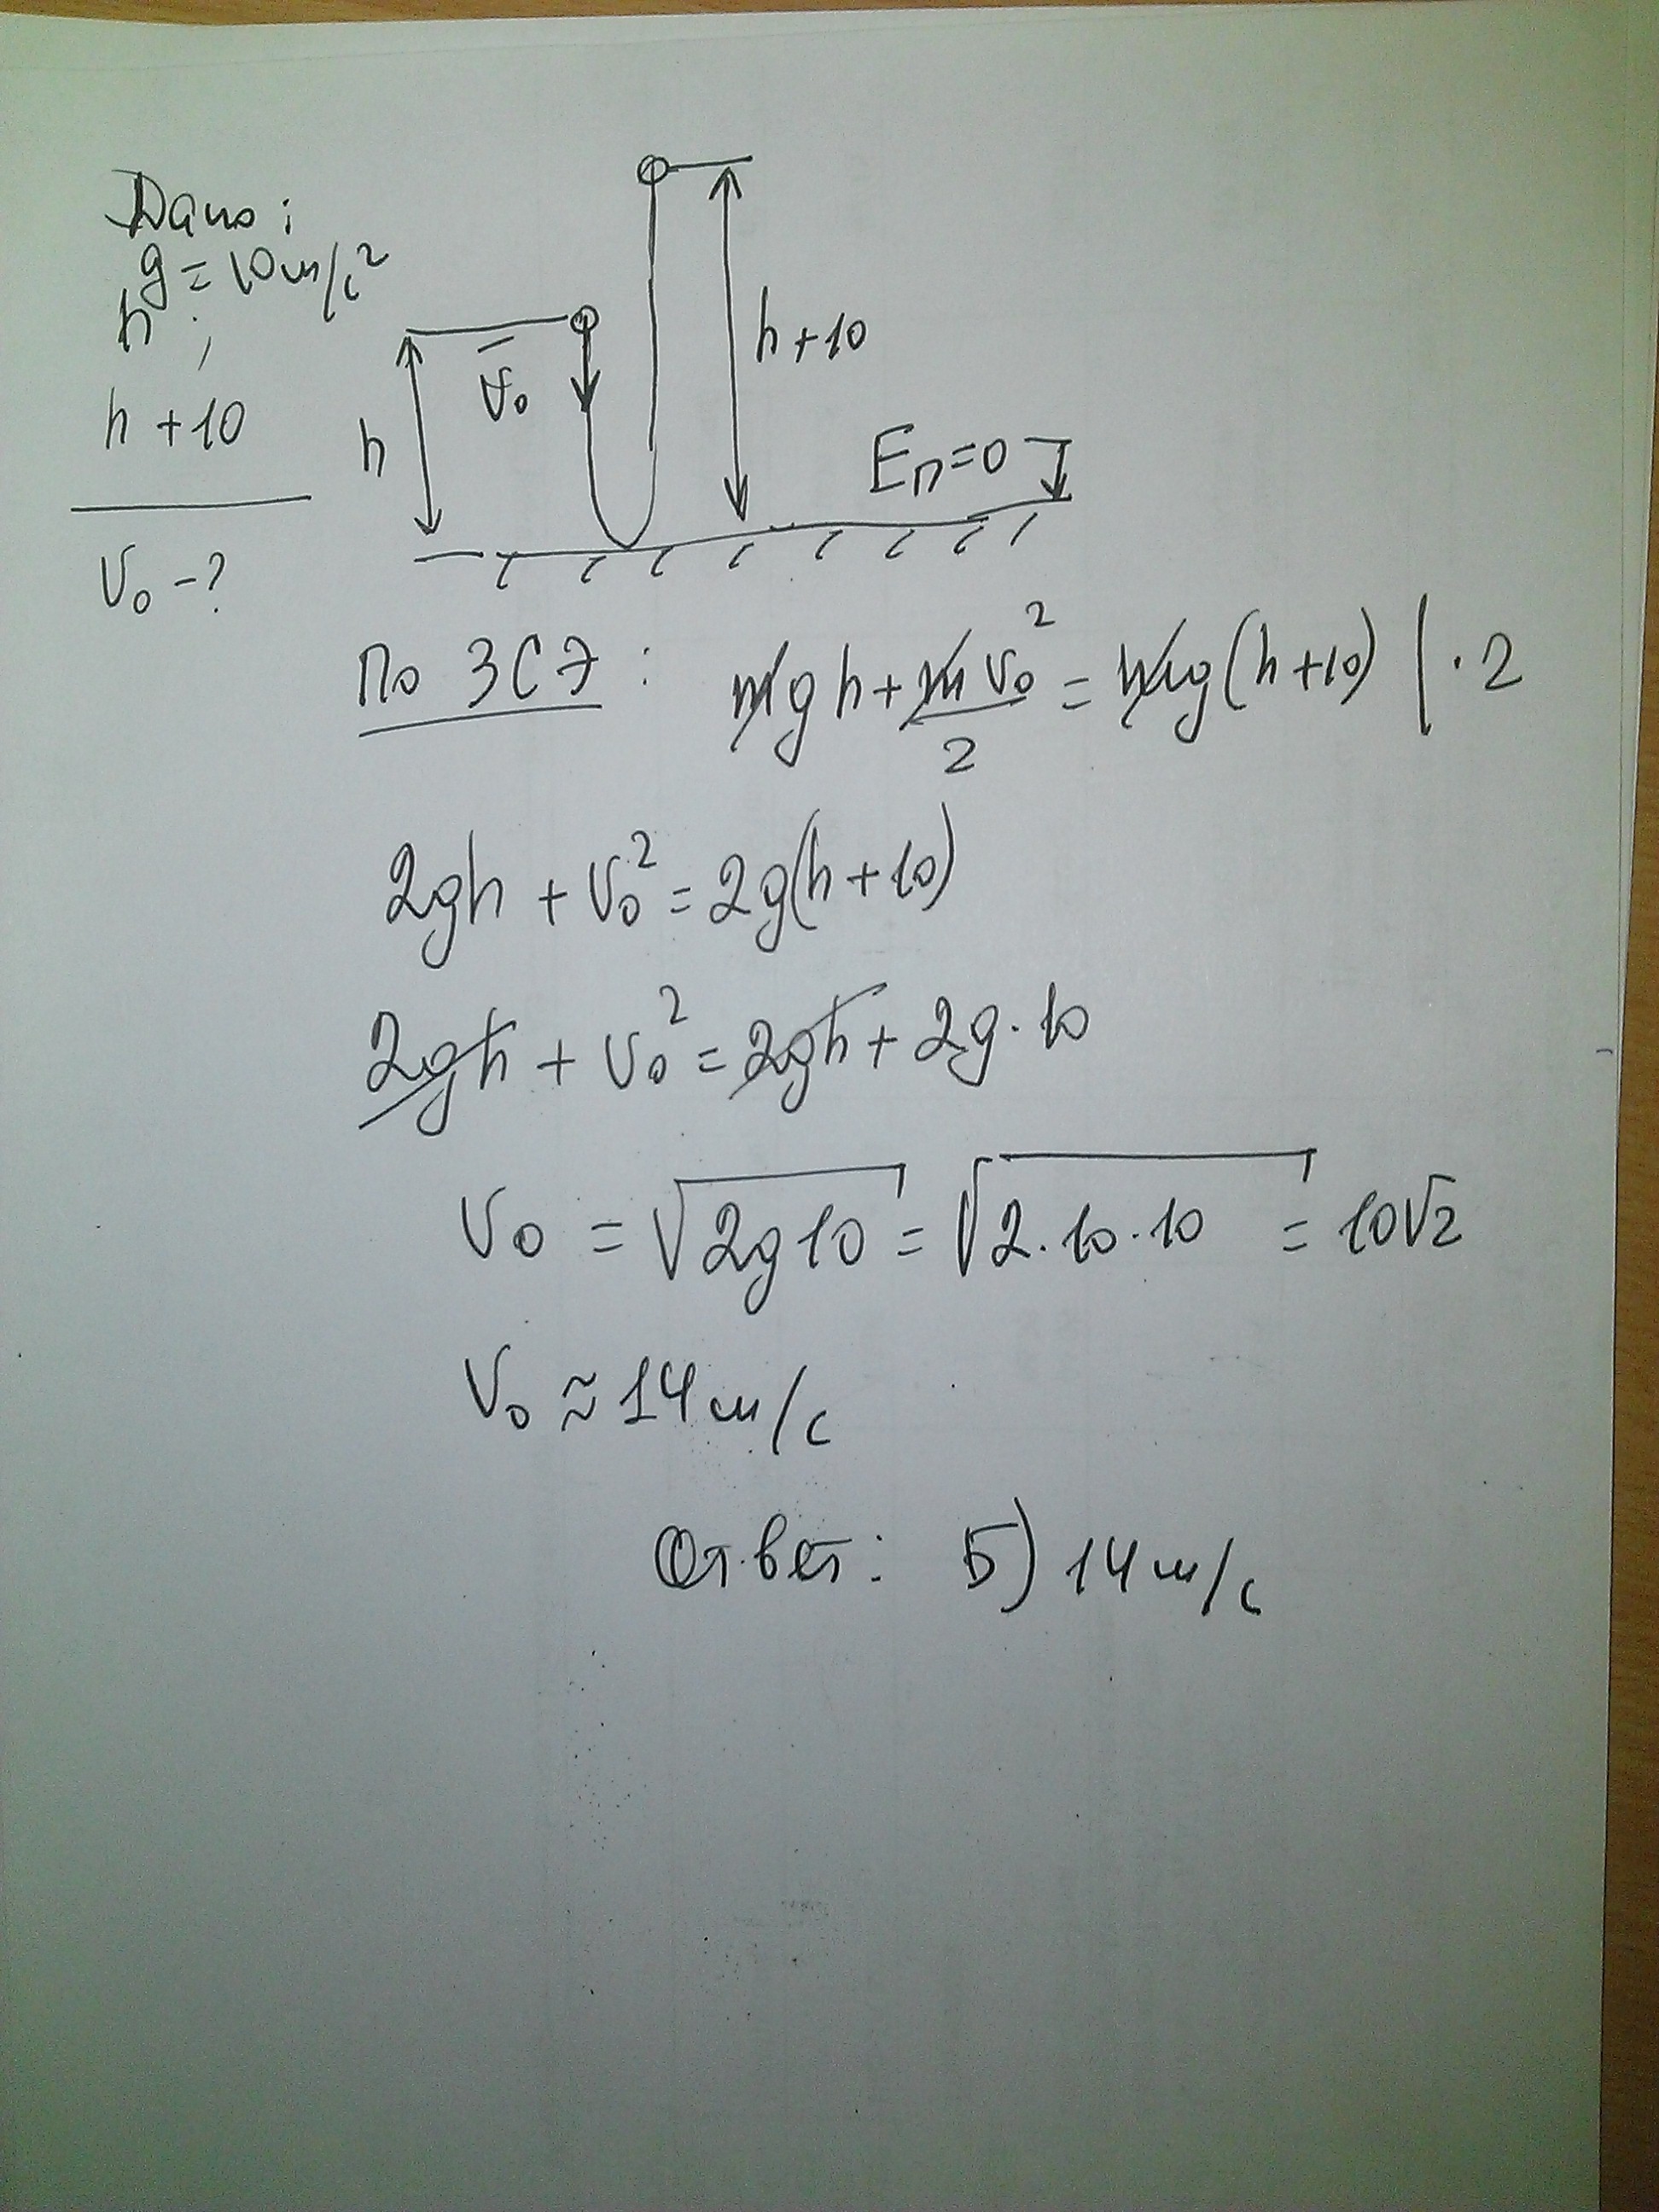 Дано:
g = 10 м/с²
h ;
h + 10
V₀ - ?
h
V₀
h + 10
Eп = 0
По ЗСЭ : mgh + mV₀²/2 = mg(h + 10) | · 2
2gh + V₀² = 2g(h + 10)
2gh + V₀² = 2gh + 2g · 10
V₀ = √2g10 = √2 · 10 · 10 = 10√2
V₀ ≈ 14 м/с
Ответ: Б) 14 м/с